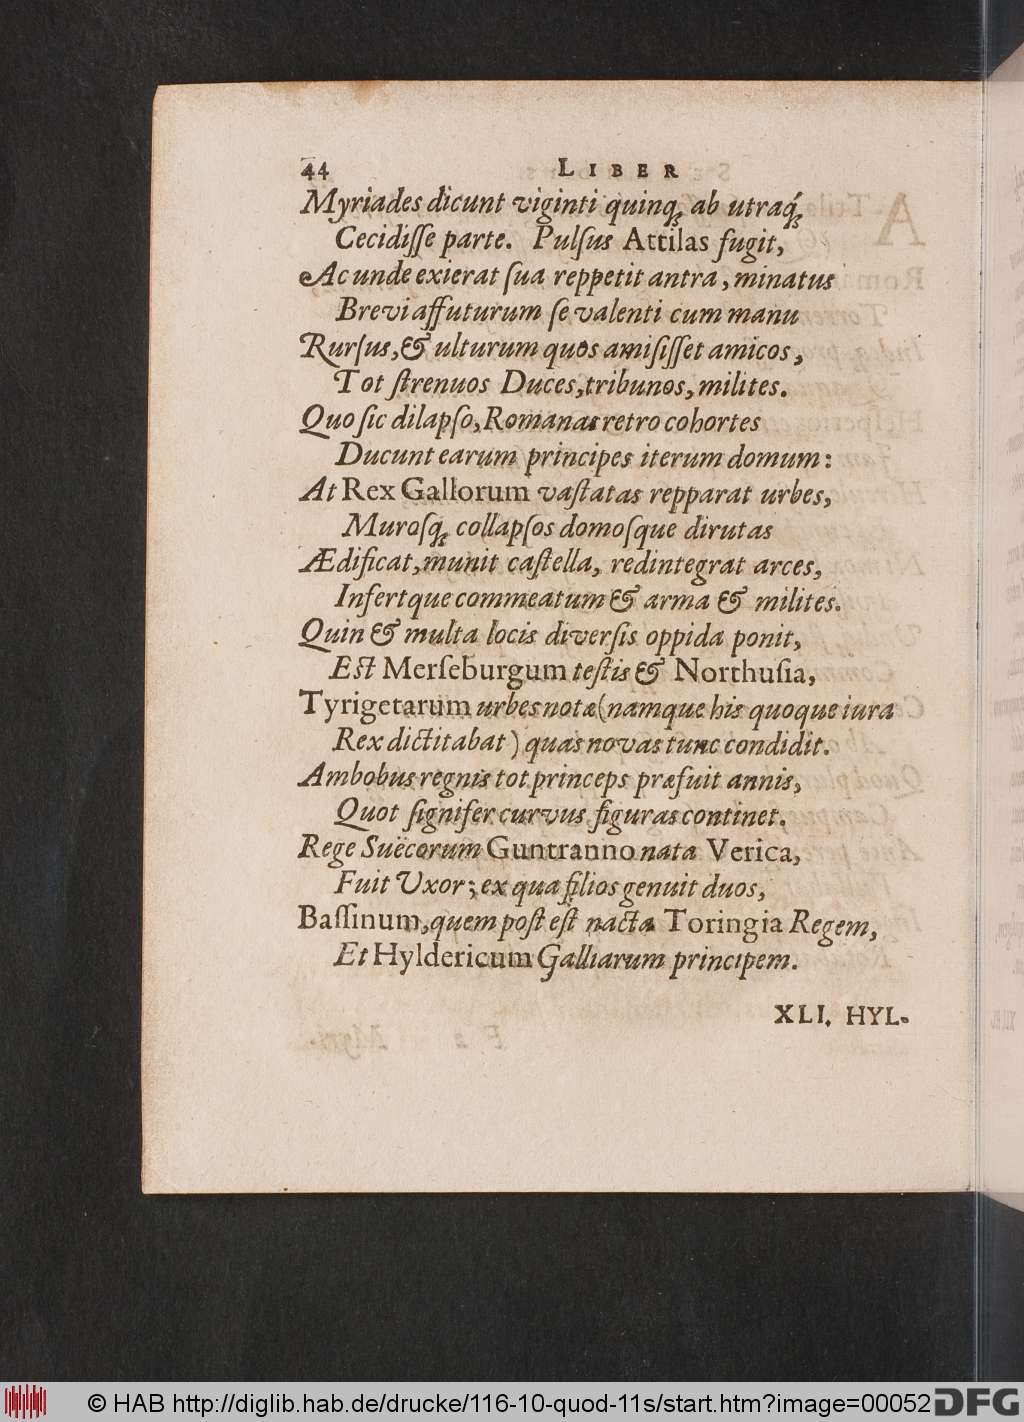 44 LIBER
Myriades dicunt viginti quinq; ab utraq́;
Cecidiſſe parte. Pulſus Attilas fugit,
Ac unde exierat ſua reppetit antra, minatus
Brevi affuturum ſe valenti cum manu
Rurſus, & ulturum quos amiſiſſet amicos,
Tot ſtrenuos Duces, tribunos, milites.
Quo ſic dilapſo, Romanas retro cohortes
Ducunt earum principes iterum domum:
At Rex Gallorum vaſtatas repparat urbes,
Muroſq; collapſos domoſque dirutas
Ædificat, munit caſtella, redintegrat arces,
Infertque commeatum & arma & milites.
Quin & multa locis diverſis oppida ponit,
Eſt Merſeburgum teſtis & Northuſia,
Tyrigetarum urbes notæ (namque his quoque iura
Rex dictitabat) quas novas tunc condidit.
Ambobus regnis tot princeps præfuit annis,
Quot ſignifer curvus figuras continet.
Rege Suëcorum Guntranno nata Verica,
Fuit Uxor; ex qua filios genuit duos,
Baſſinum, quem poſt eſt nacta Toringia Regem,
Et Hyldericum Galliarum principem.
XLI. HYL-
© HAB http://diglib.hab.de/drucke/116-10-quod-11s/start.htm?image=00052
DFG